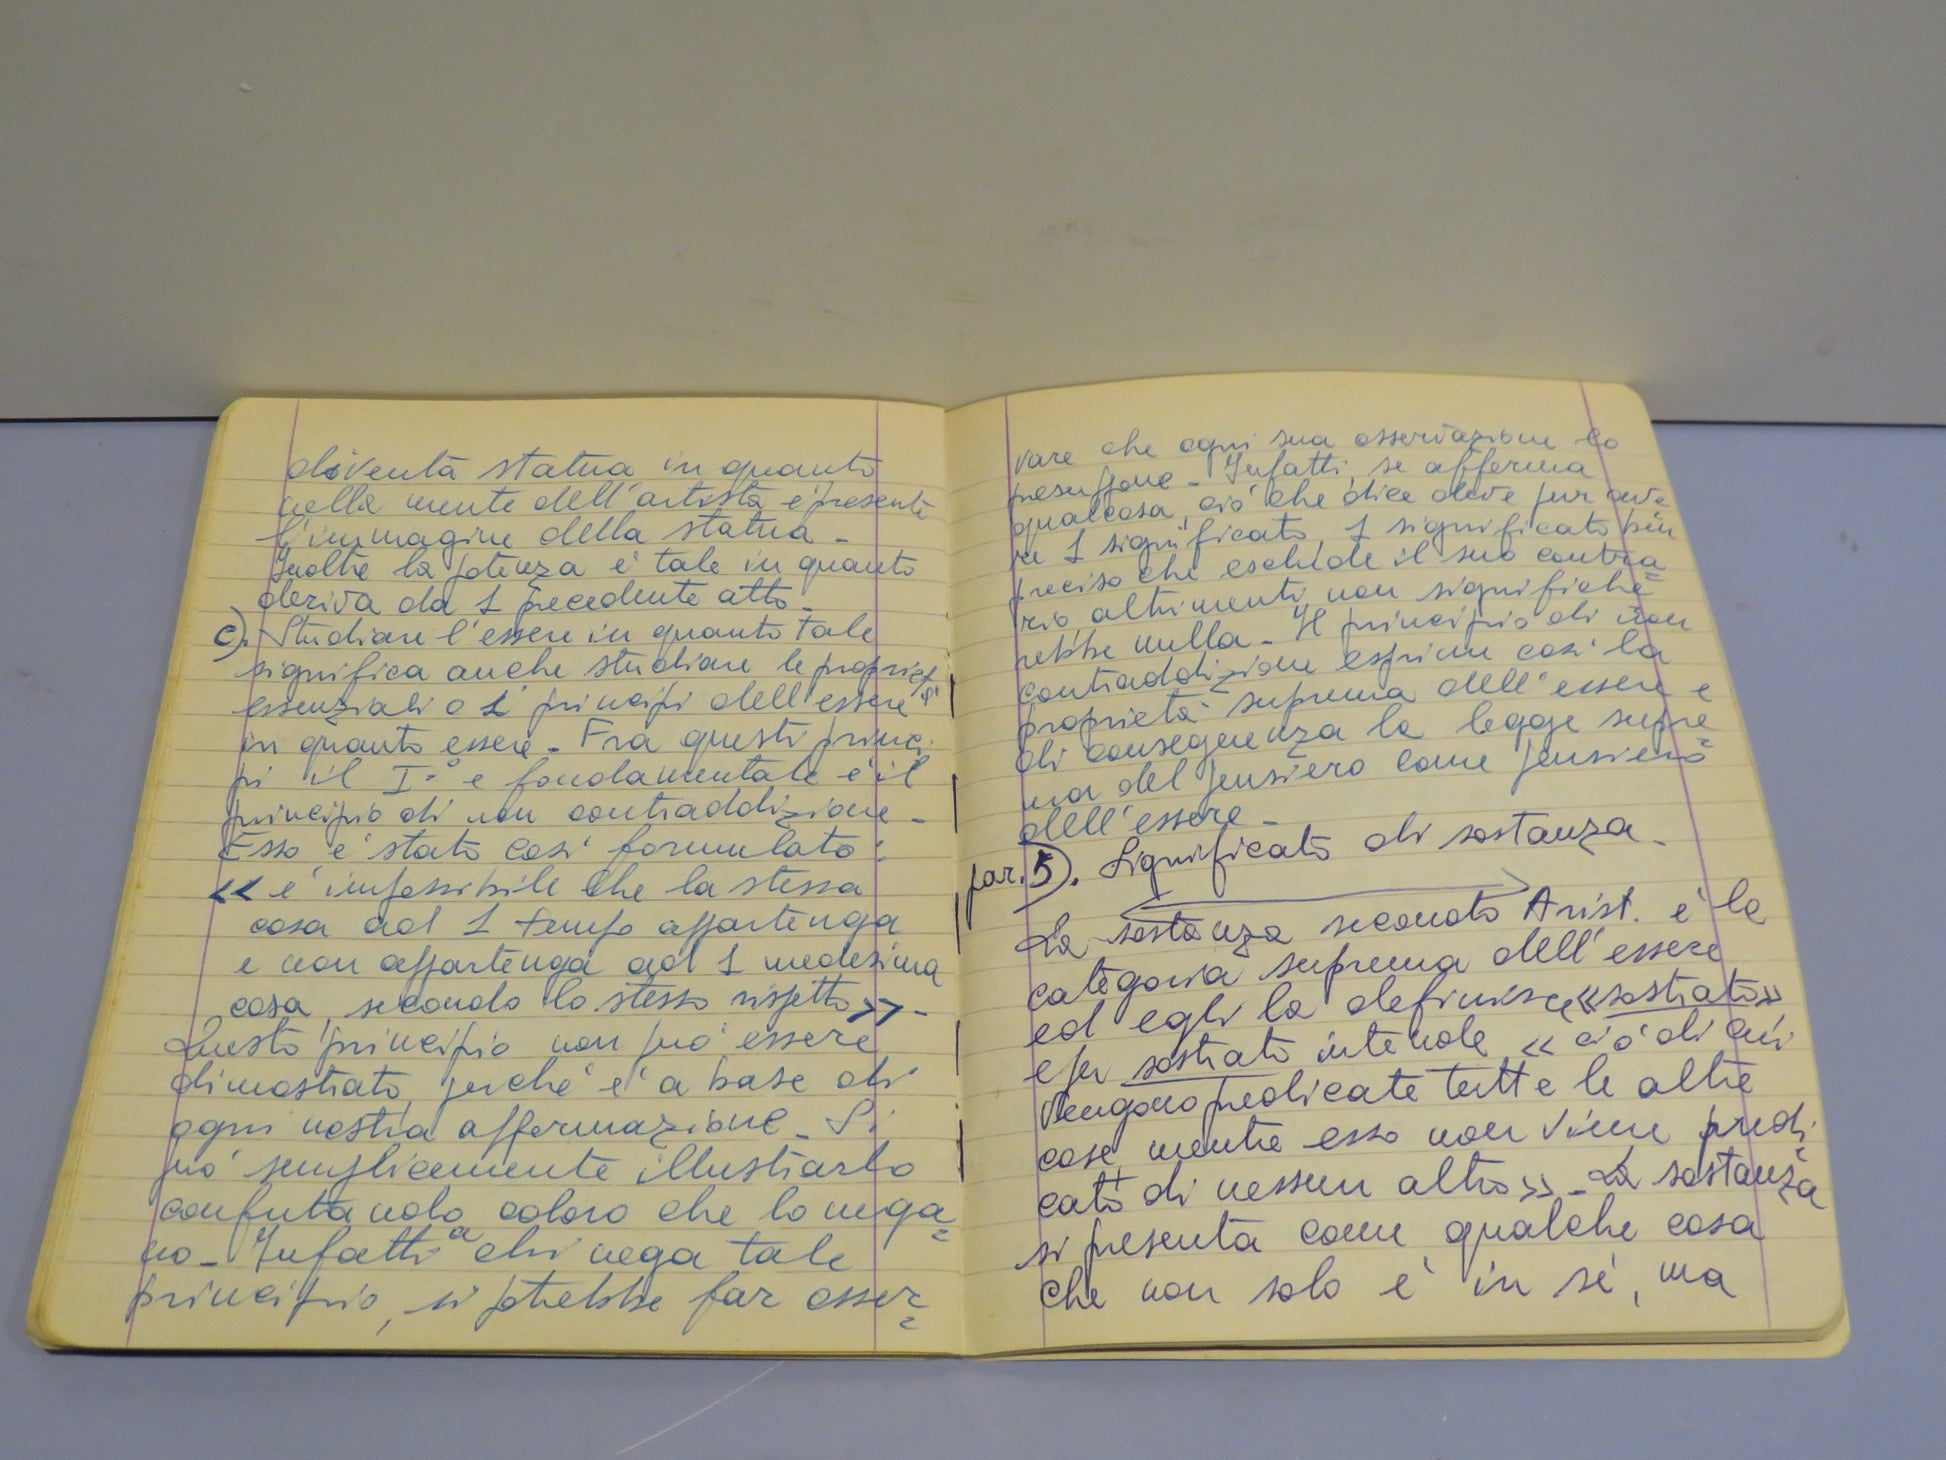 diventa statua in quanto
nella mente dell'artista è presente
l'immagine della statua -
Inoltre la potenza è tale in quanto
deriva da 1 precedente atto -
c). Studiare l'essere in quanto tale
significa anche studiare le propriet
essenziali o i principi dell'essere
in quanto essere - Fra questi princi
pi il I° e fondamentale è il
principio di non contraddizione -
Esso è stato così formulato:
<< è impossibile che la stessa
cosa ad 1 tempo appartenga
e non appartenga ad 1 medesima
cosa, secondo lo stesso rispetto >> -
Questo principio non può essere
dimostrato, perché è a base di
ogni nostra affermazione - Si
può semplicemente illustrarlo
confutando coloro che lo nega=
no - Infatti a chi nega tale
principio, si potrebbe far osser=
vare che ogni sua osservazione lo
presuppone - Infatti, se afferma
qualcosa, ciò che dice deve pur ave=
re 1 significato, 1 significato ben
preciso che eschlde il suo contra=
rio altrimenti non significhe=
rebbe nulla - Il principio di non
contraddizione esprime così la
proprietà suprema dell'essere e
di conseguenza la legge supre=
ma del pensiero come pensiero
dell'essere -
par. 5). Significato di sostanza -
La sostanza secondo Arist. è la
categoria suprema dell'essere
ed egli la definisce << sostrato >>
e per sostrato intende << ciò di cui
vengono predicate tutte le altre
cose mentre esso non viene predi=
cato di nessun altro >> - La sostanza
si presenta come qualche cosa
che non solo è in sé, ma